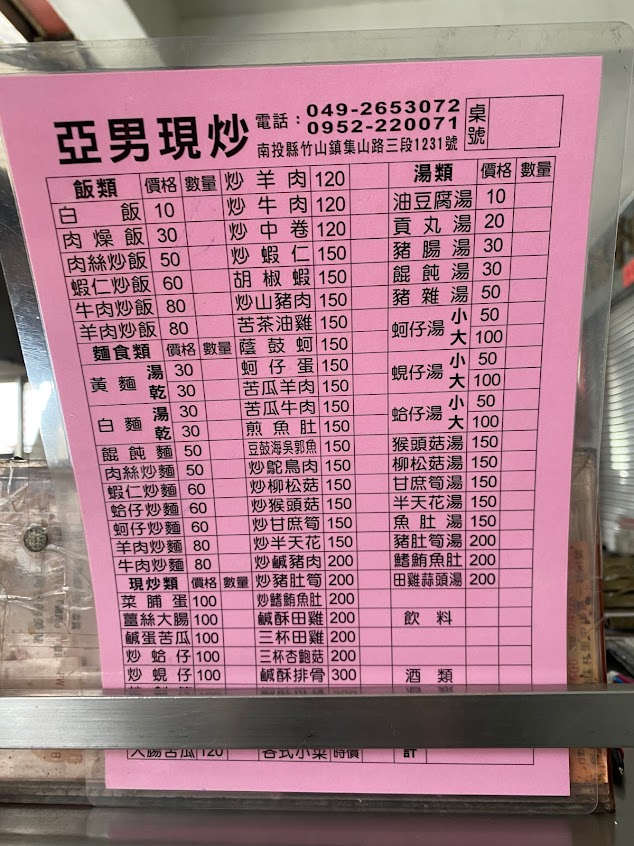 亞男現炒
電話：049-2653072
0952-220071
南投縣竹山鎮集山路三段1231號
桌號
飯類 價格 數量
白飯 10
肉燥飯 30
肉絲炒飯 50
蝦仁炒飯 60
牛肉炒飯 80
羊肉炒飯 80
麵食類 價格 數量
黃麵 湯 30
乾 30
白麵 湯 30
乾 30
餛飩麵 50
肉絲炒麵 50
蝦仁炒麵 60
蛤仔炒麵 60
蚵仔炒麵 60
羊肉炒麵 80
牛肉炒麵 80
現炒類 價格 數量
菜脯蛋 100
薑絲大腸 100
鹹蛋苦瓜 100
炒蛤仔 100
炒蜆仔 100
大腸苦瓜 120
炒羊肉 120
炒牛肉 120
炒中卷 120
炒蝦仁 150
胡椒蝦 150
炒山豬肉 150
苦茶油雞 150
蔭鼓蚵 150
蚵仔蛋 150
苦瓜羊肉 150
苦瓜牛肉 150
煎魚肚 150
豆鼓海吳郭魚 150
炒鴕鳥肉 150
炒柳松菇 150
炒猴頭菇 150
炒甘庶筍 150
炒半天花 150
炒鹹豬肉 200
炒豬肚筍 200
炒鰭鮪魚肚 200
鹹酥田雞 200
三杯田雞 200
三杯杏鮑菇 200
鹹酥排骨 300
各式小菜 時價
湯類 價格 數量
油豆腐湯 10
貢丸湯 20
豬腸湯 30
餛飩湯 30
豬雜湯 50
蚵仔湯 小 50
大 100
蜆仔湯 小 50
大 100
蛤仔湯 小 50
大 100
猴頭菇湯 150
柳松菇湯 150
甘庶筍湯 150
半天花湯 150
魚肚湯 150
豬肚筍湯 200
鰭鮪魚肚 200
田雞蒜頭湯 200
飲料
酒類
計